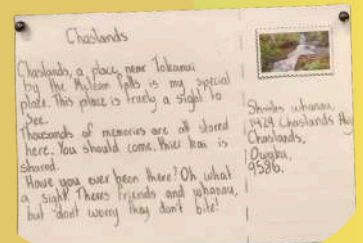 Chaslands
Chaslands, a place near Tokanui
by the Mclean falls is my special
place. This place is truely a sight to
see.
Thousands of memories are all stored
here. You should come, thier kai is
shared.
Have you ever been there? Oh what
a sight! Theres friends and whanau,
but don't worry they don't bite!
whanau,
Chaslands
Chaslands,
9586.